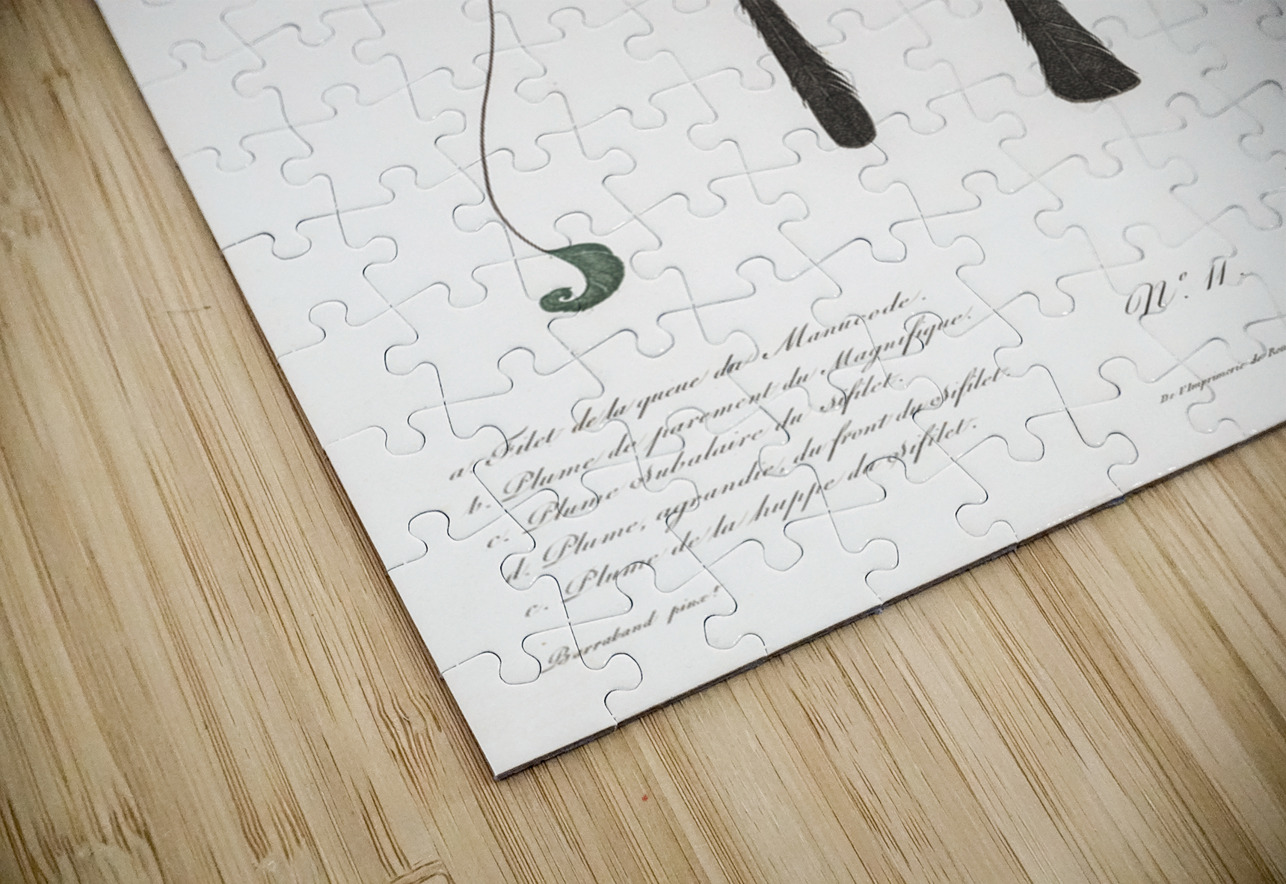 a. Filet de la queue du Manucode.
b. Plume de parement du Magnifique.
c. Plume Subulaire du Sifilet.
d. Plume, agrandie, du front du Sifilet.
e. Plume de la huppe du Sifilet.
Barraband pinx.t
N.º 11.
De l'Imprimerie de